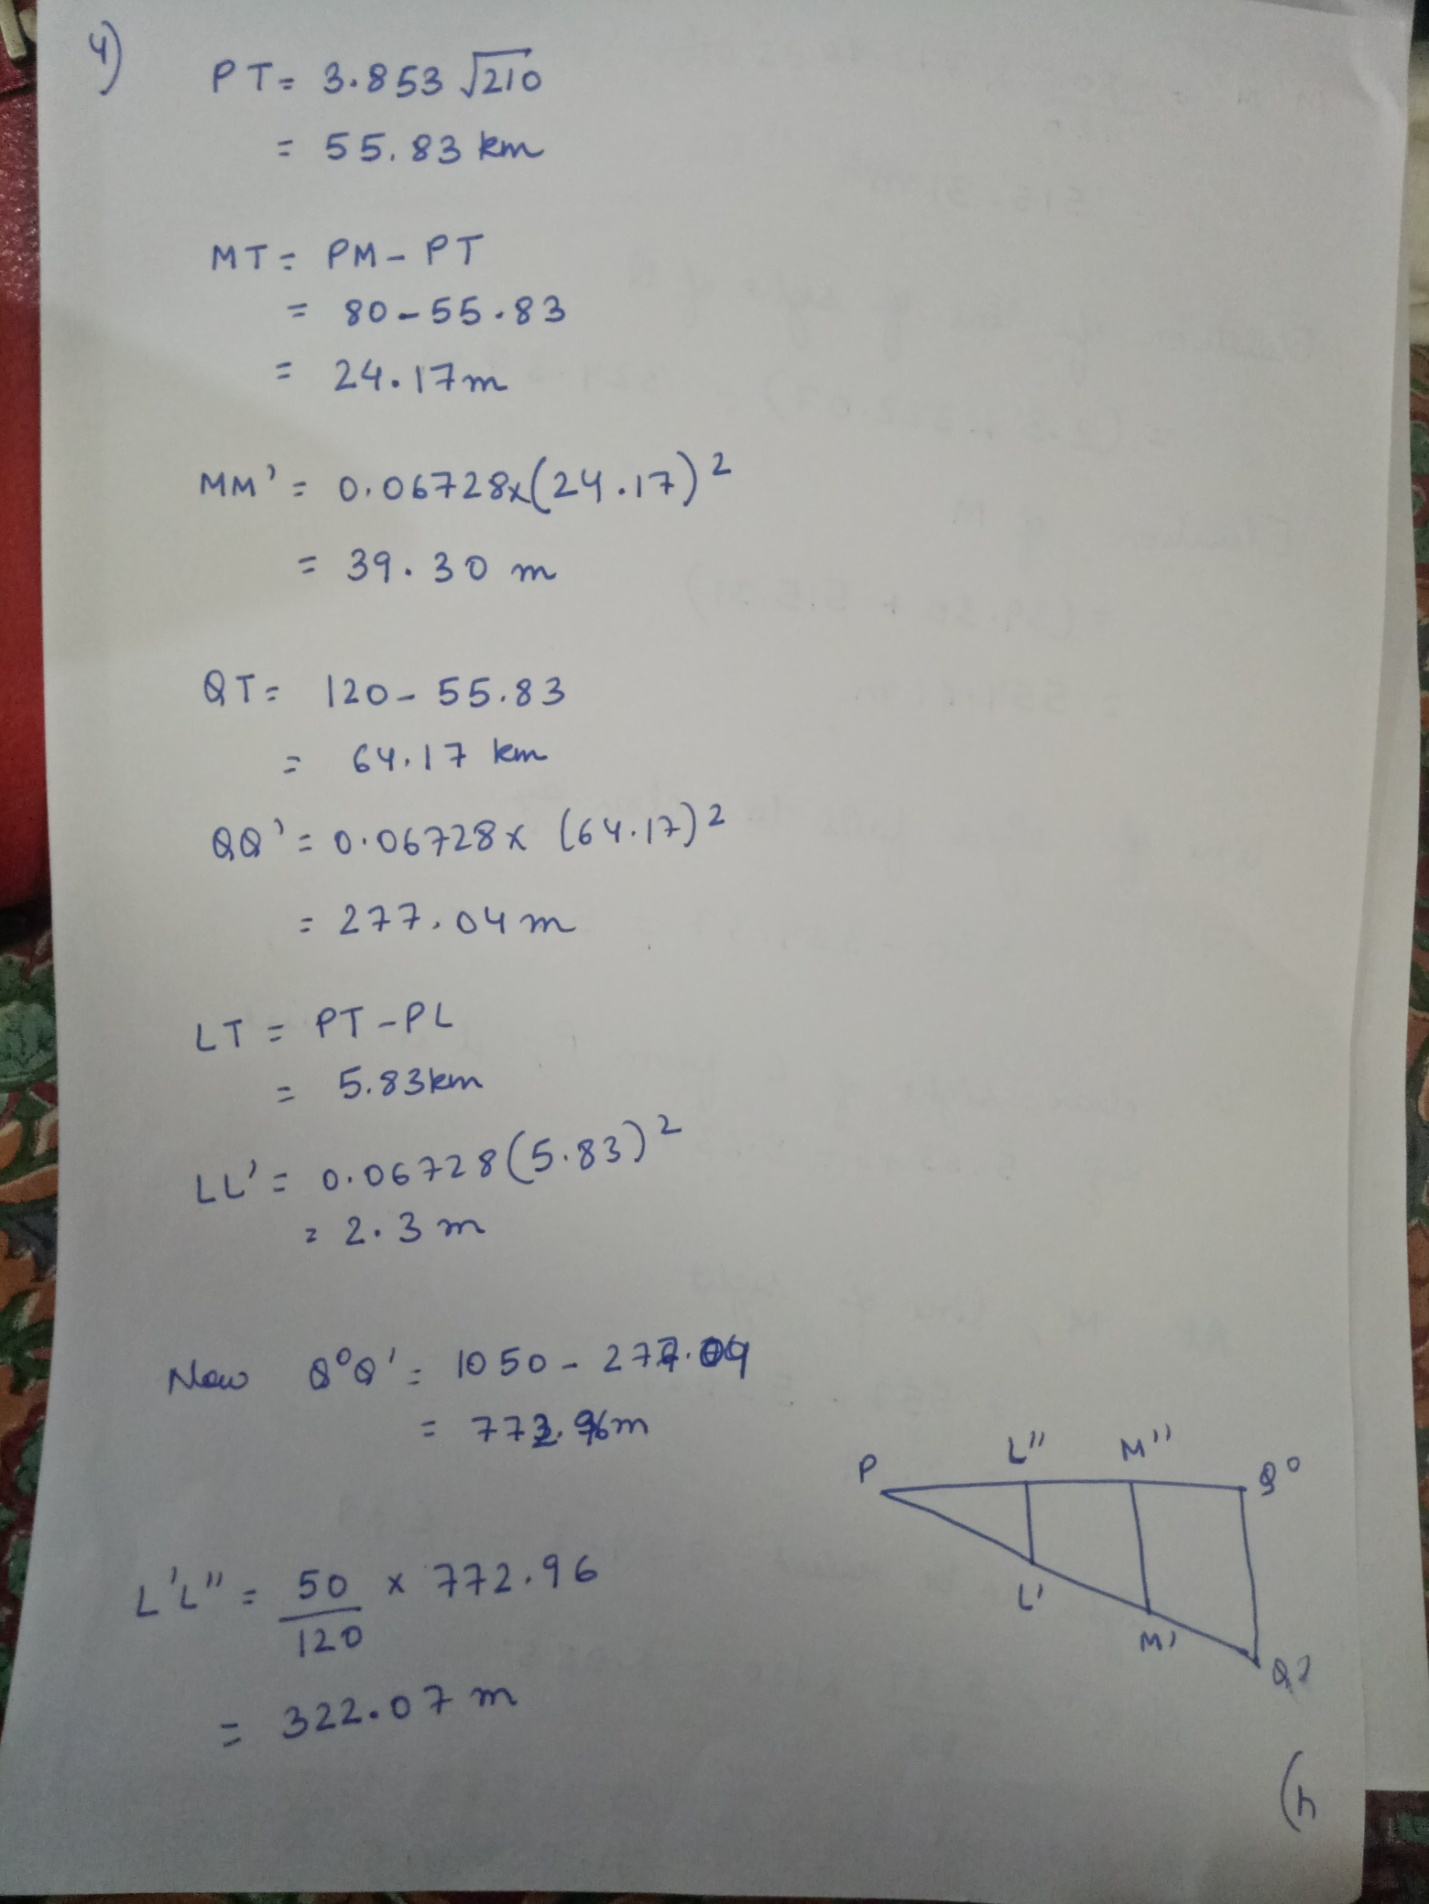 4)
PT = 3.853 √210
= 55.83 km
MT = PM - PT
= 80 - 55.83
= 24.17m
MM' = 0.06728x(24.17)²
= 39.30 m
QT = 120 - 55.83
= 64.17 km
QQ' = 0.06728 x (64.17)²
= 277.04 m
LT = PT - PL
= 5.83km
LL' = 0.06728 (5.83)²
= 2.3 m
Now Q°Q' = 1050 - 277.04
= 772.96m
P L" M" Q°
L' M' Q'
L'L" = 50/120 x 772.96
= 322.07 m
(h